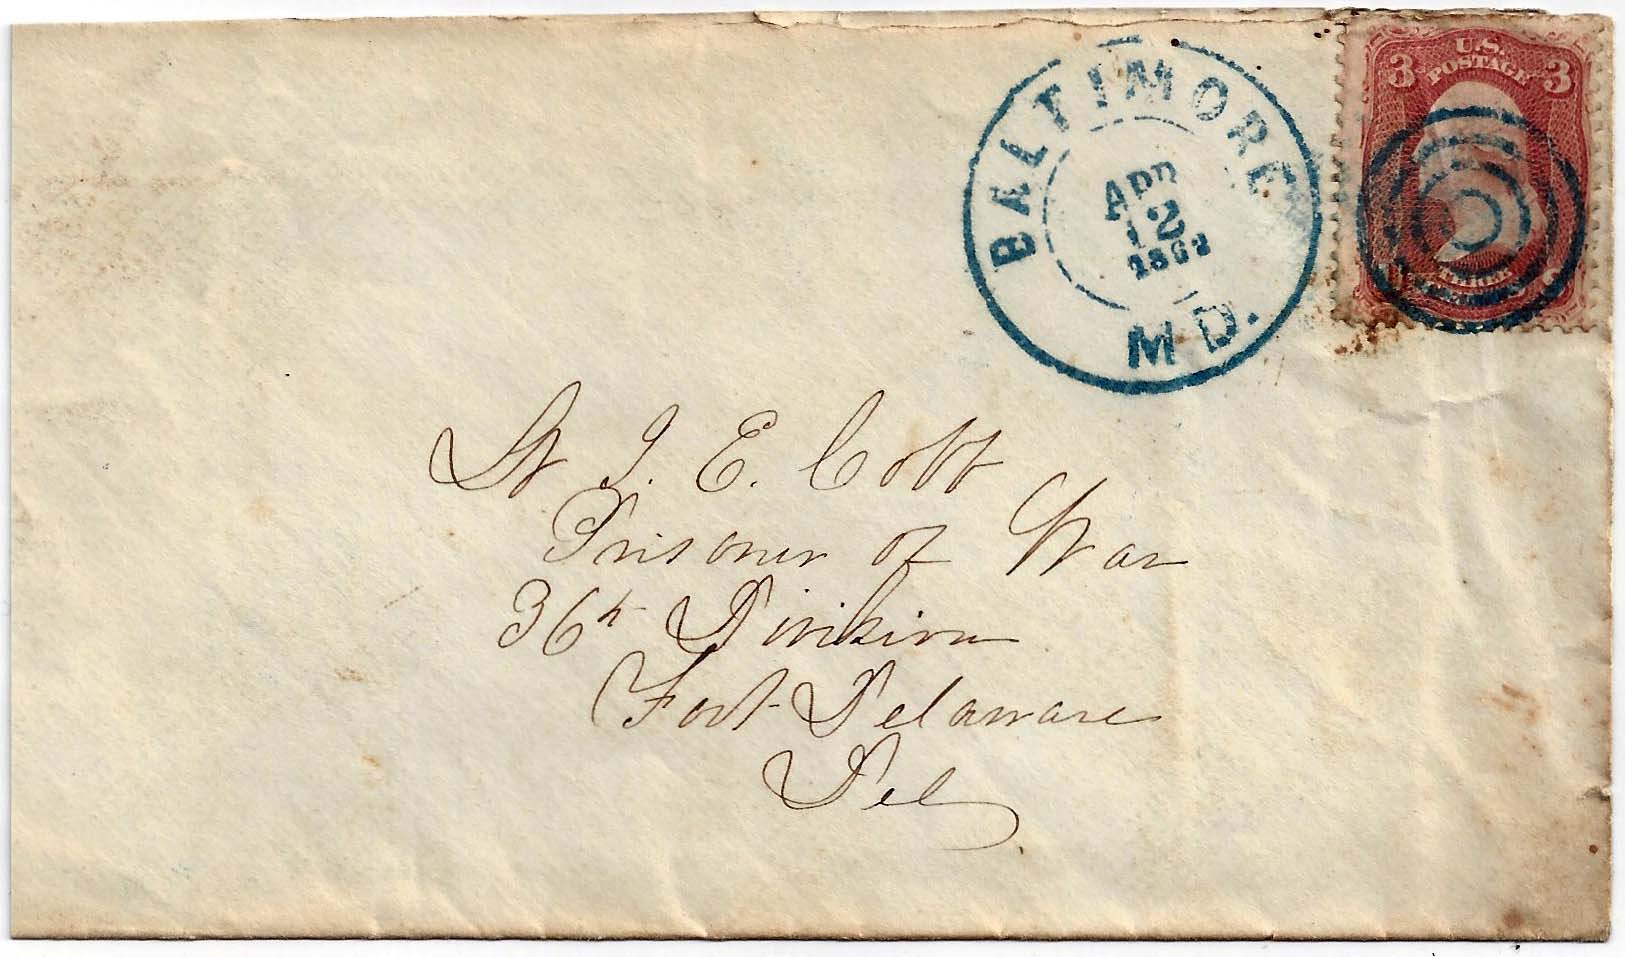 U.S.
POSTAGE
3 3
THREE
BALTIMORE
APR
12
MD.
Lt J. E. Cobb
Prisoner of War
36th Division
Fort Delaware
Del